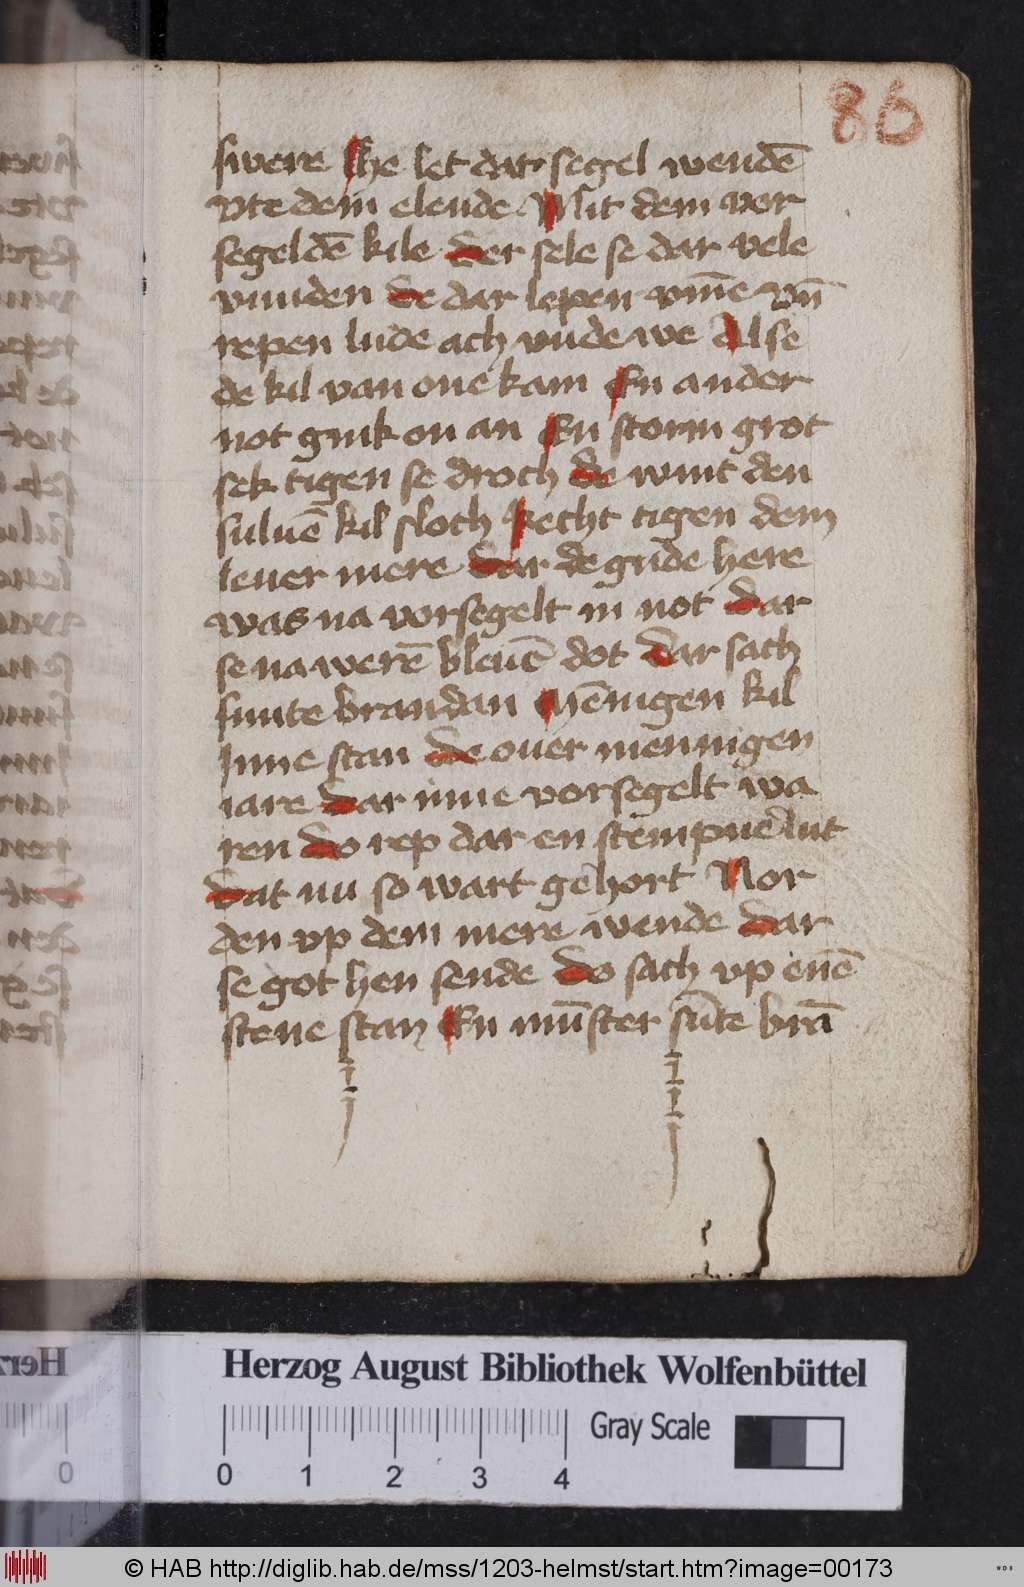 86
swere She let dat segel wendē
vte dem elende Mit dem vor
segeldē kile der sele se dar vele
vunden de dar lepen vm̄e vn̄
repen lude ach vnde we Alse
de kil van one kam En ander
not gink on an En storm grot
sek tigen se droch de wint den
suluē kil sloch Recht tigen dem
leuer mere dar de gude here
was na vorsegelt in not dar
se na werē bleuē dot dar sach
sunte brandan Mēnigen kil
Inne stan de ouer mennigen
iare dar inne vorsegelt wa
ren do rep dar en stempne lut
dat nu so wart gehort Nor
den vp dem mere wende dar
se got hen sende do sach vp enē
stene stan En mūster sūte brā
Herzog August Bibliothek Wolfenbüttel
Gray Scale
0 1 2 3 4
© HAB http://diglib.hab.de/mss/1203-helmst/start.htm?image=00173